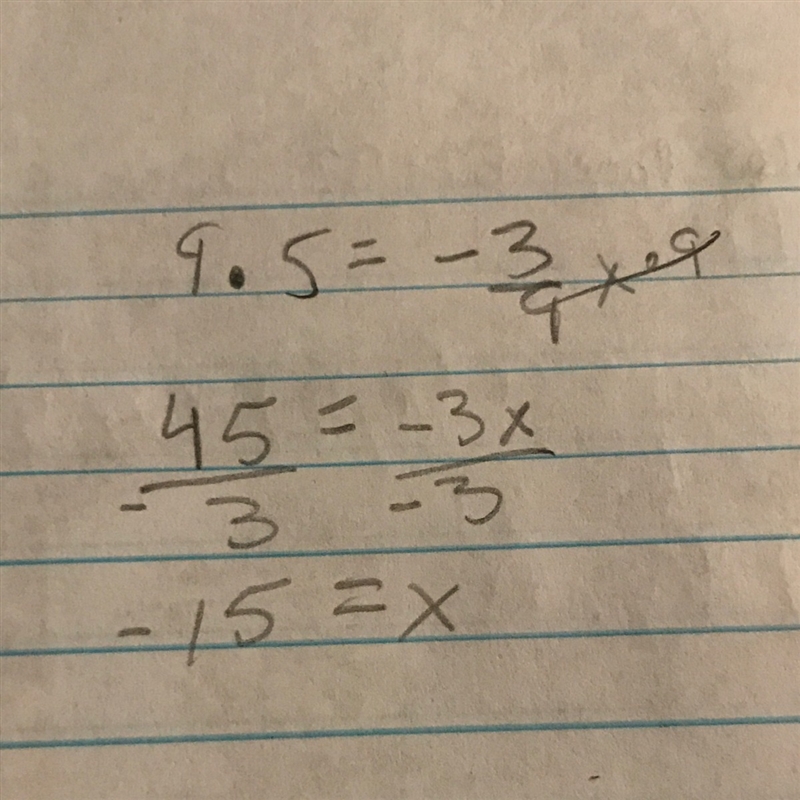 9 • 5 = - 3/9 x • 9
45/-3 = -3x/-3
-15 = x